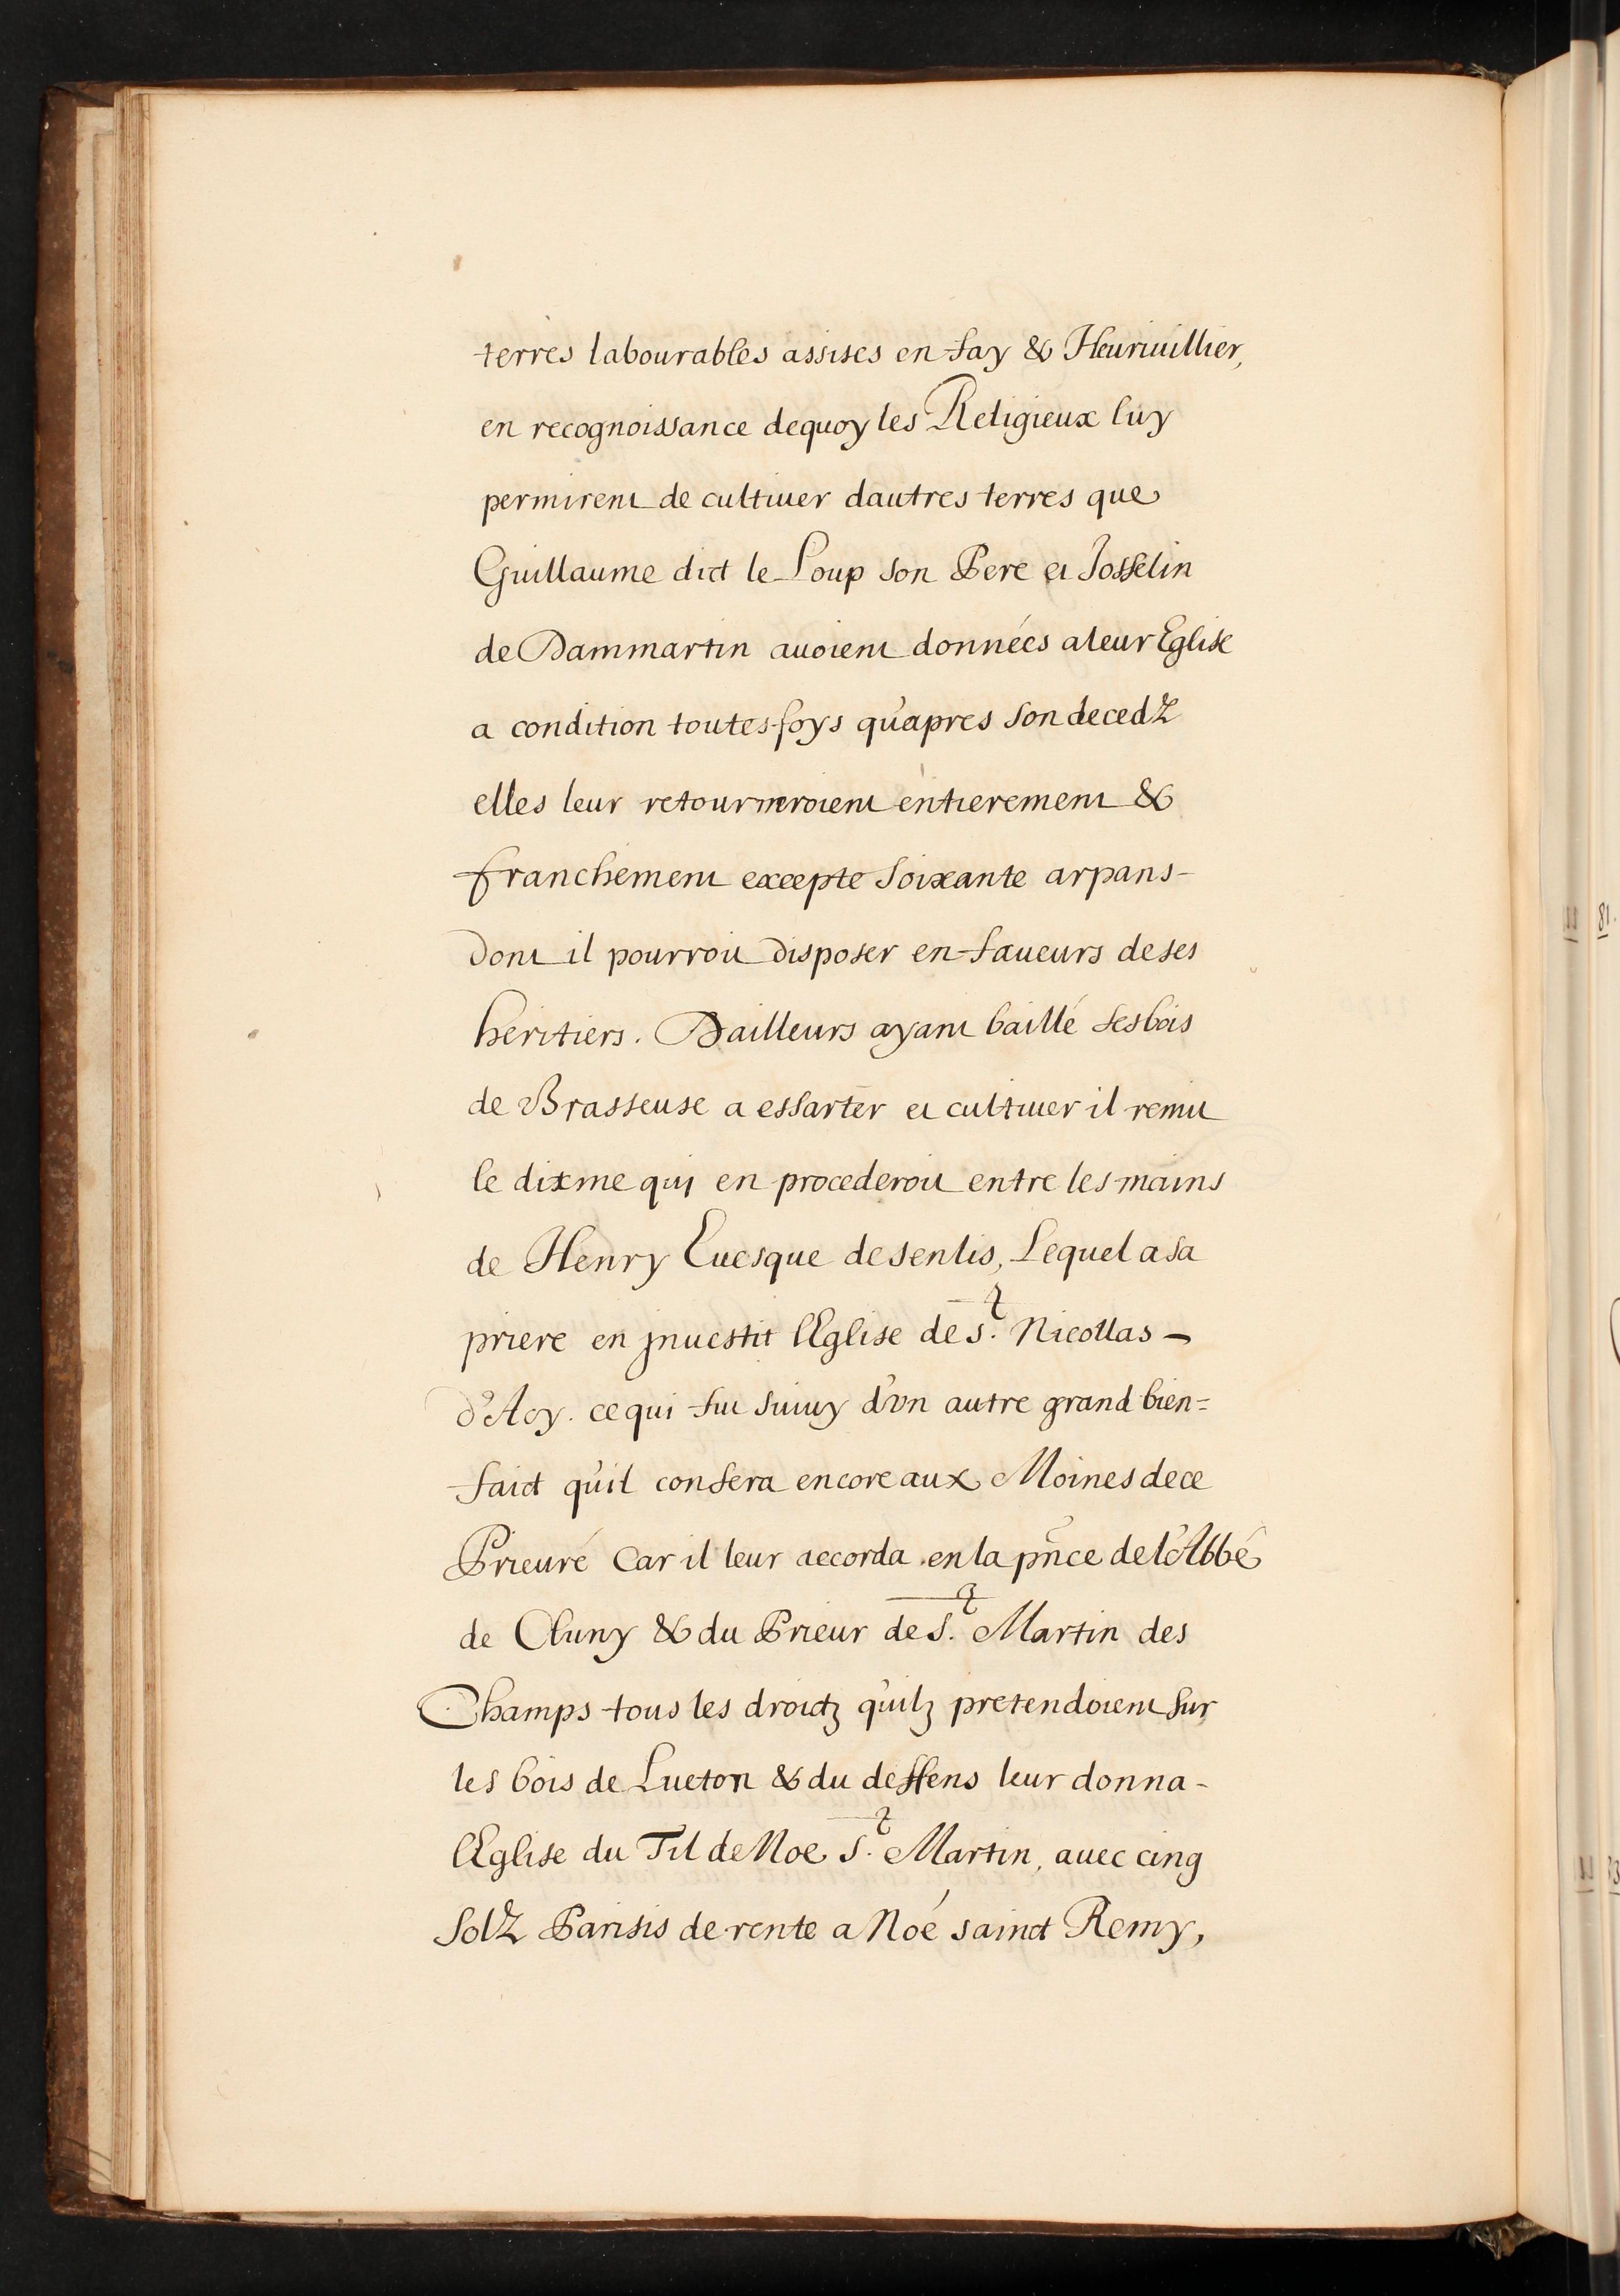 terres labourables assises en fay & Heuriuillier,
en recognoissance dequoy les Religieux luy
permirent de cultiuer dautres terres que
Guillaume dict le Loup son Pere et Josselin
de Dammartin auoient données a leur Eglise
a condition toutesfoys qu'apres son decedz
elles leur retourneroient entierement &
franchement excepte soixante arpans -
dont il pourroit disposer en faueurs de ses
heritiers. Dailleurs ayant baillé ses bois
de Brasseuse a essarter et cultiuer il remit
le dixme qui en procederoit entre les mains
de Henry Euesque de senlis, Lequel a sa
priere en jnuestit l'Eglise de S.t Nicollas -
d'Acy. ce qui fut suiuy d'vn autre grand bien=
faict qu'il confera encore aux Moines de ce
Prieuré Car il leur accorda en la pñce de l'Abbé
de Cluny & du Prieur de S.t Martin des
Champs tous les droictz qu'ilz pretendoient sur
les bois de Lueton & du deffens leur donna -
l'Eglise du Til de Noe S.t Martin, auec cinq
solz Parisis de rente a Noé sainct Remy,
81.